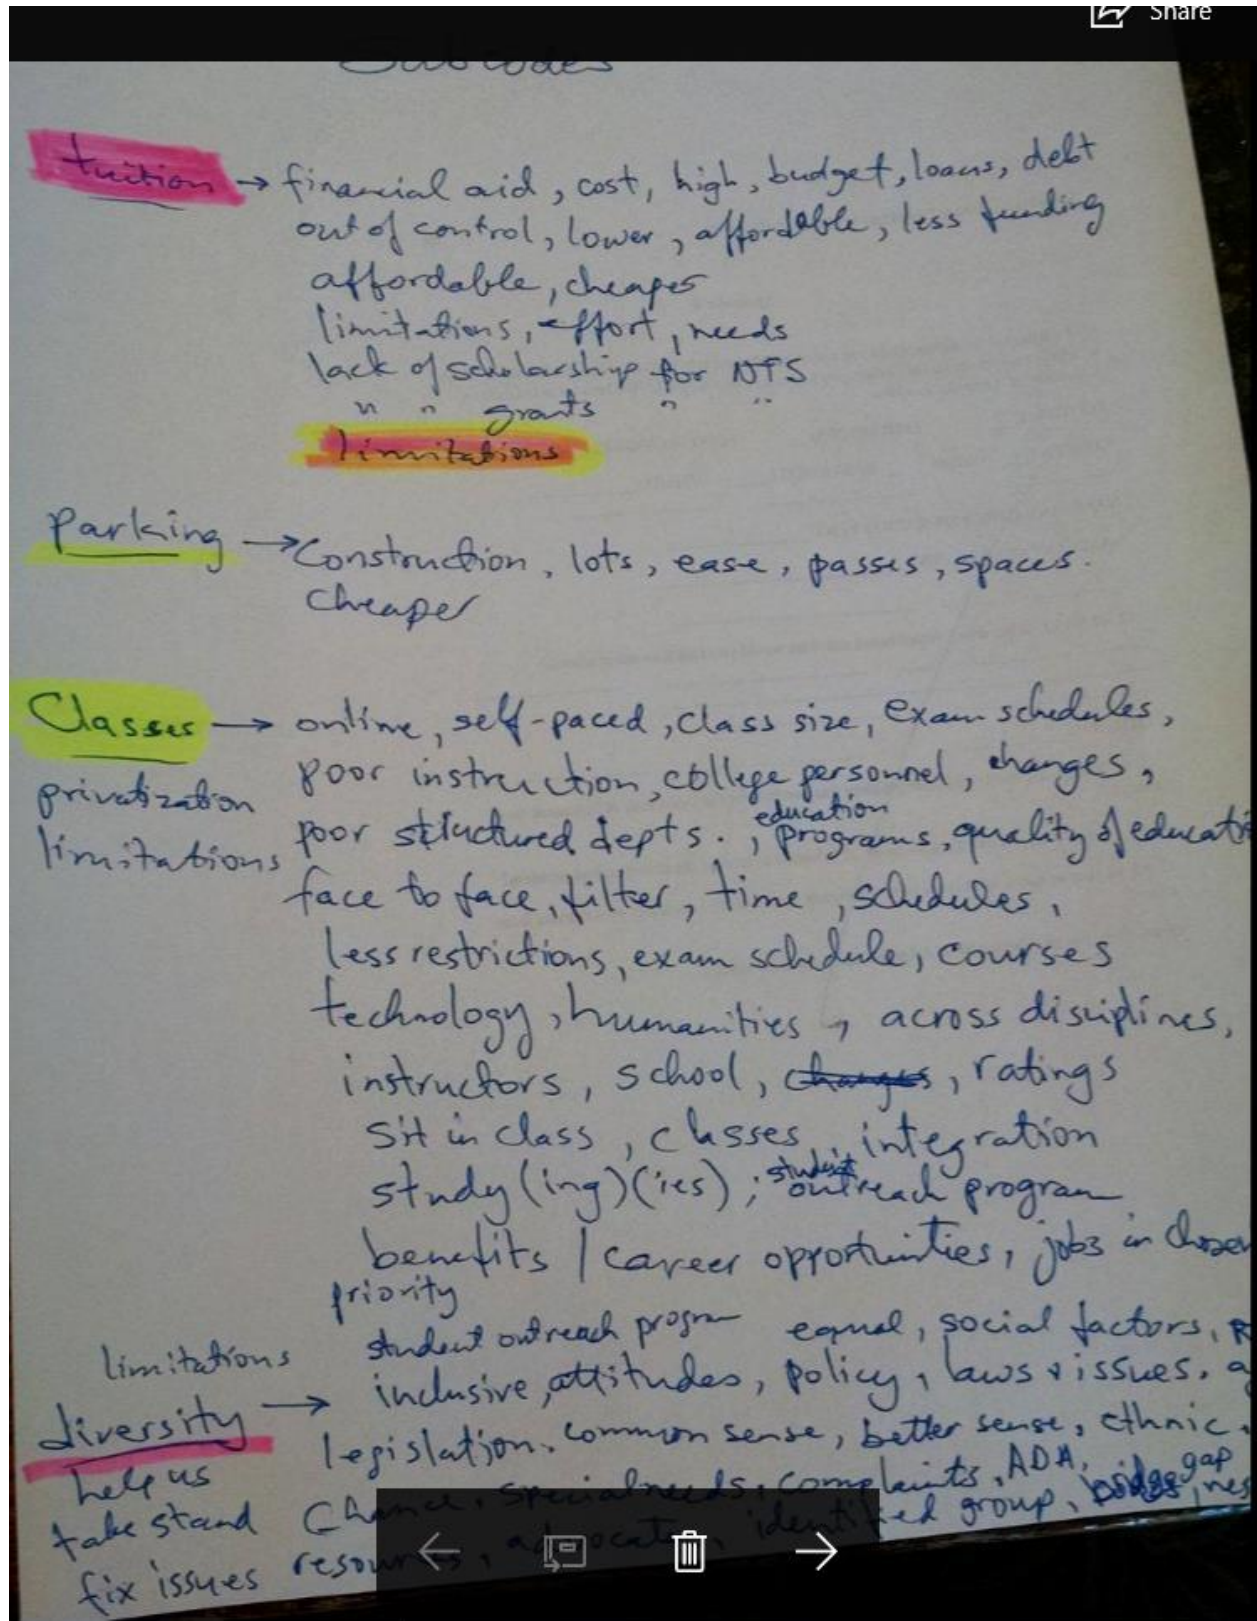 Share
Subcodes
tuition → financial aid, cost, high, budget, loans, debt
out of control, lower, affordable, less funding
affordable, cheaper
limitations, effort, needs
lack of scholarship for NTS
" " grants " "
limitations
parking → Construction, lots, ease, passes, spaces.
Cheaper
Classes → online, self-paced, class size, exam schedules,
privatization poor instruction, college personnel, changes,
education
limitations poor structured depts., programs, quality of educati
face to face, filter, time, schedules,
less restrictions, exam schedule, courses
technology, humanities, across disciplines,
instructors, school, changes, ratings
sit in class, classes, integration
study(ing)(ies); student outreach program
benefits / career opportunities, jobs in chosen
priority
student outreach program equal, social factors,
limitations
diversity → inclusive, attitudes, policy, laws & issues,
legislation. common sense, better sense, ethnic,
help us
take stand Chance, special needs, complaints, ADA, gap
fix issues resources, advocate, identified group, bridge